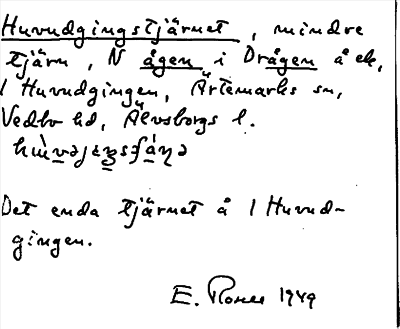 Huvudgingstjärnet, mindre
tjärn, N ågen i Drågen å ek,
1 Huvudgingen, Ärtemarks sn,
Vedbo hd, Älvsborgs l.
Det enda tjärnet å 1 Huvud-
gingen.
E. 1949